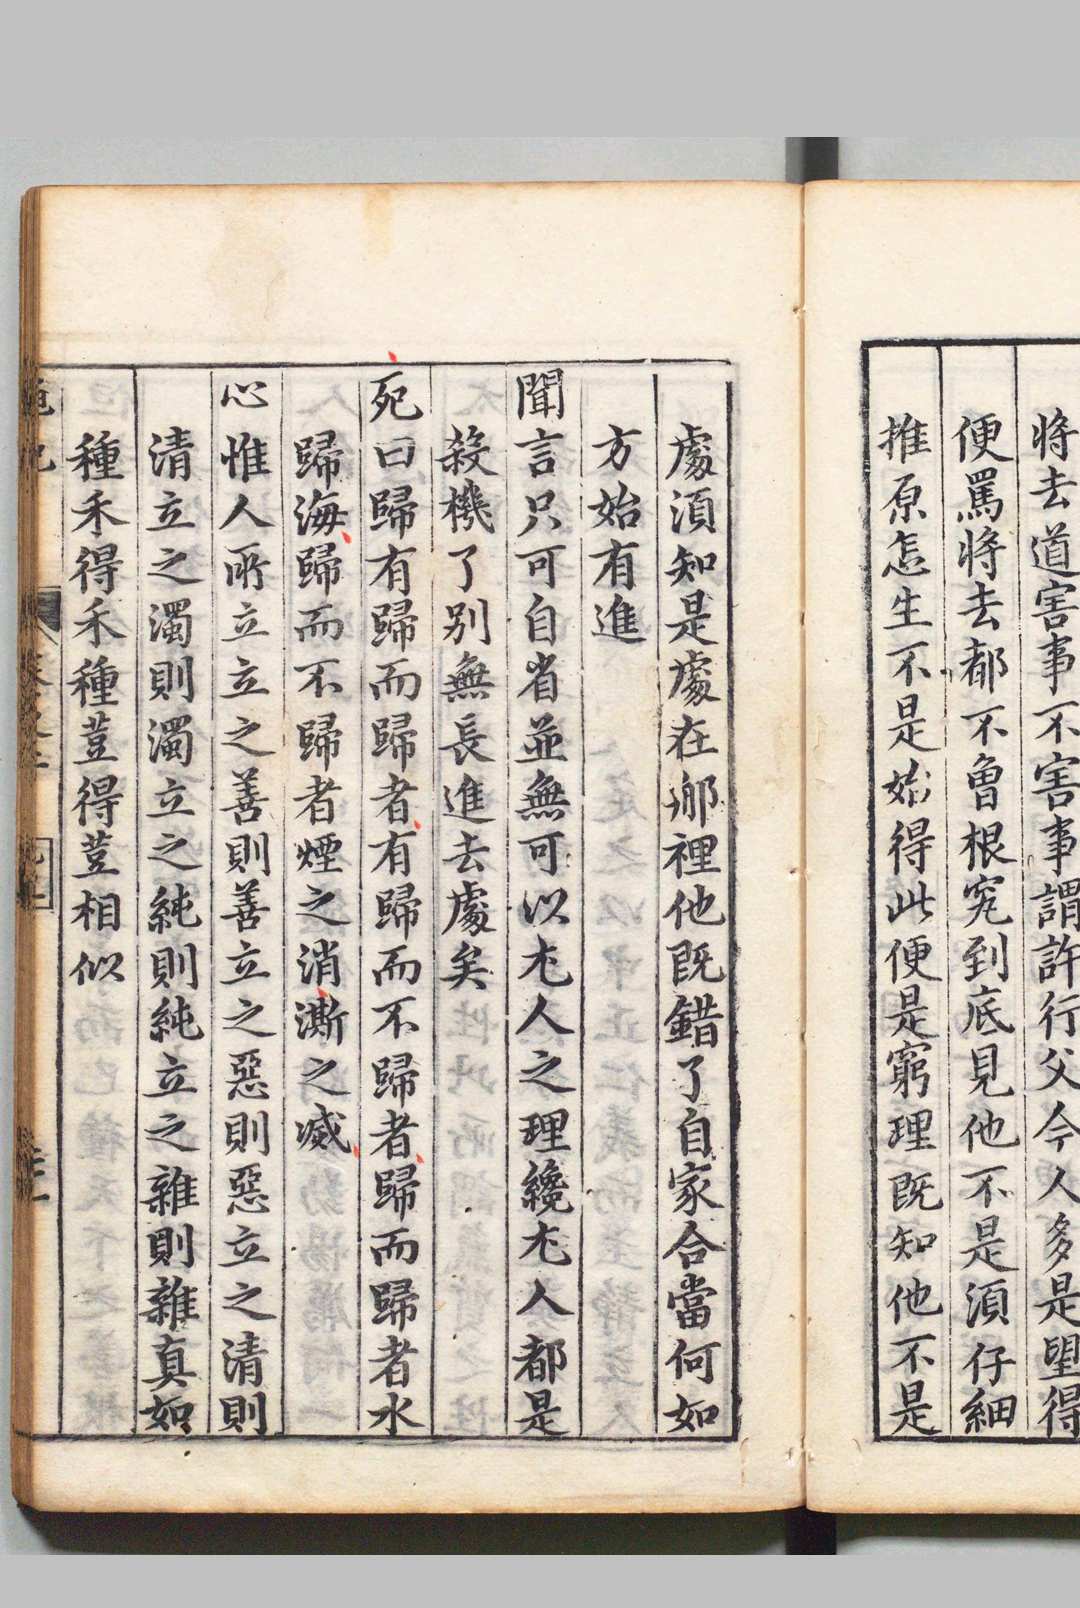 將去道害事不害事謂許行父今人多是望得
便罵將去都不曾根究到底見他不是須仔細
推原怎生不是始得此便是窮理既知他不是
處須知是處在那裡他既錯了自家合當何如
方始有進
聞言只可自省並無可以尤人之理纔尤人都是
殺機了別無長進去處矣
死曰歸有歸而歸者有歸而不歸者歸而歸者水
歸海歸而不歸者煙之消澌之滅
心惟人所立立之善則善立之惡則惡立之清則
清立之濁則濁立之純則純立之雜則雜真如
種禾得禾種荳得荳相似